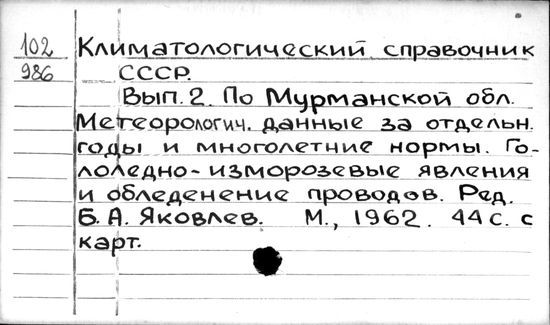 102
986
Климатологический справочник
СССР.
Вып. 2. По Мурманской обл.
Метеорологич. данные за отдельн.
годы и многолетние нормы. Го-
лоледно-изморозевые явления
и обледенение проводов. Ред.
Б. А. Яковлев. М., 1962. 44 с. с
карт.